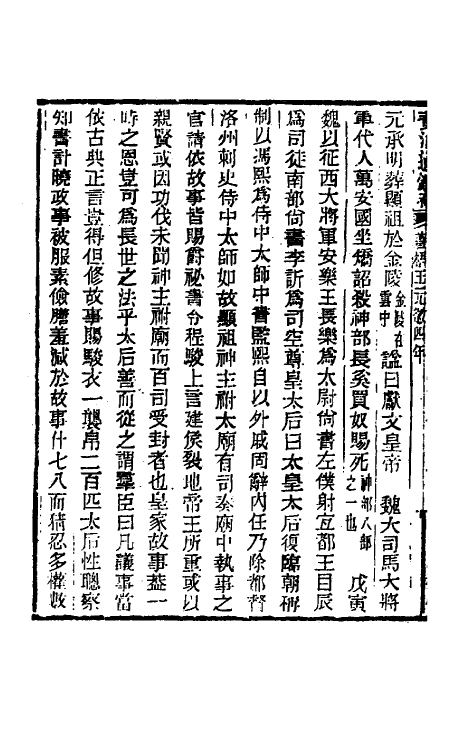 蒼梧王元徽四年
元承明葬顯祖於金陵金陵在雲中諡曰獻文皇帝　魏大司馬大將
軍代人萬安國坐矯詔殺神部長奚買奴賜死神部八部之一也　戊寅
魏以征西大將軍安樂王長樂爲太尉尚書左僕射宜都王目辰
爲司徒南部尚書李訢爲司空尊皇太后曰太皇太后復臨朝稱
制以馮熙爲侍中太師中書監熙自以外戚固辭內任乃除都督
洛州刺史侍中太師如故顯祖神主祔太廟有司奏廟中執事之
官請依故事皆賜爵祕書令程駿上言建侯裂地帝王所重或以
親賢或因功伐未聞神主祔廟而百司受封者也皇家故事蓋一
時之恩豈可爲長世之法乎太后善而從之謂羣臣曰凡議事當
依古典正言豈得但修故事賜駿衣一襲帛二百匹太后性聰察
知書計曉政事被服素儉膳羞減於故事什七八而猜忍多權數